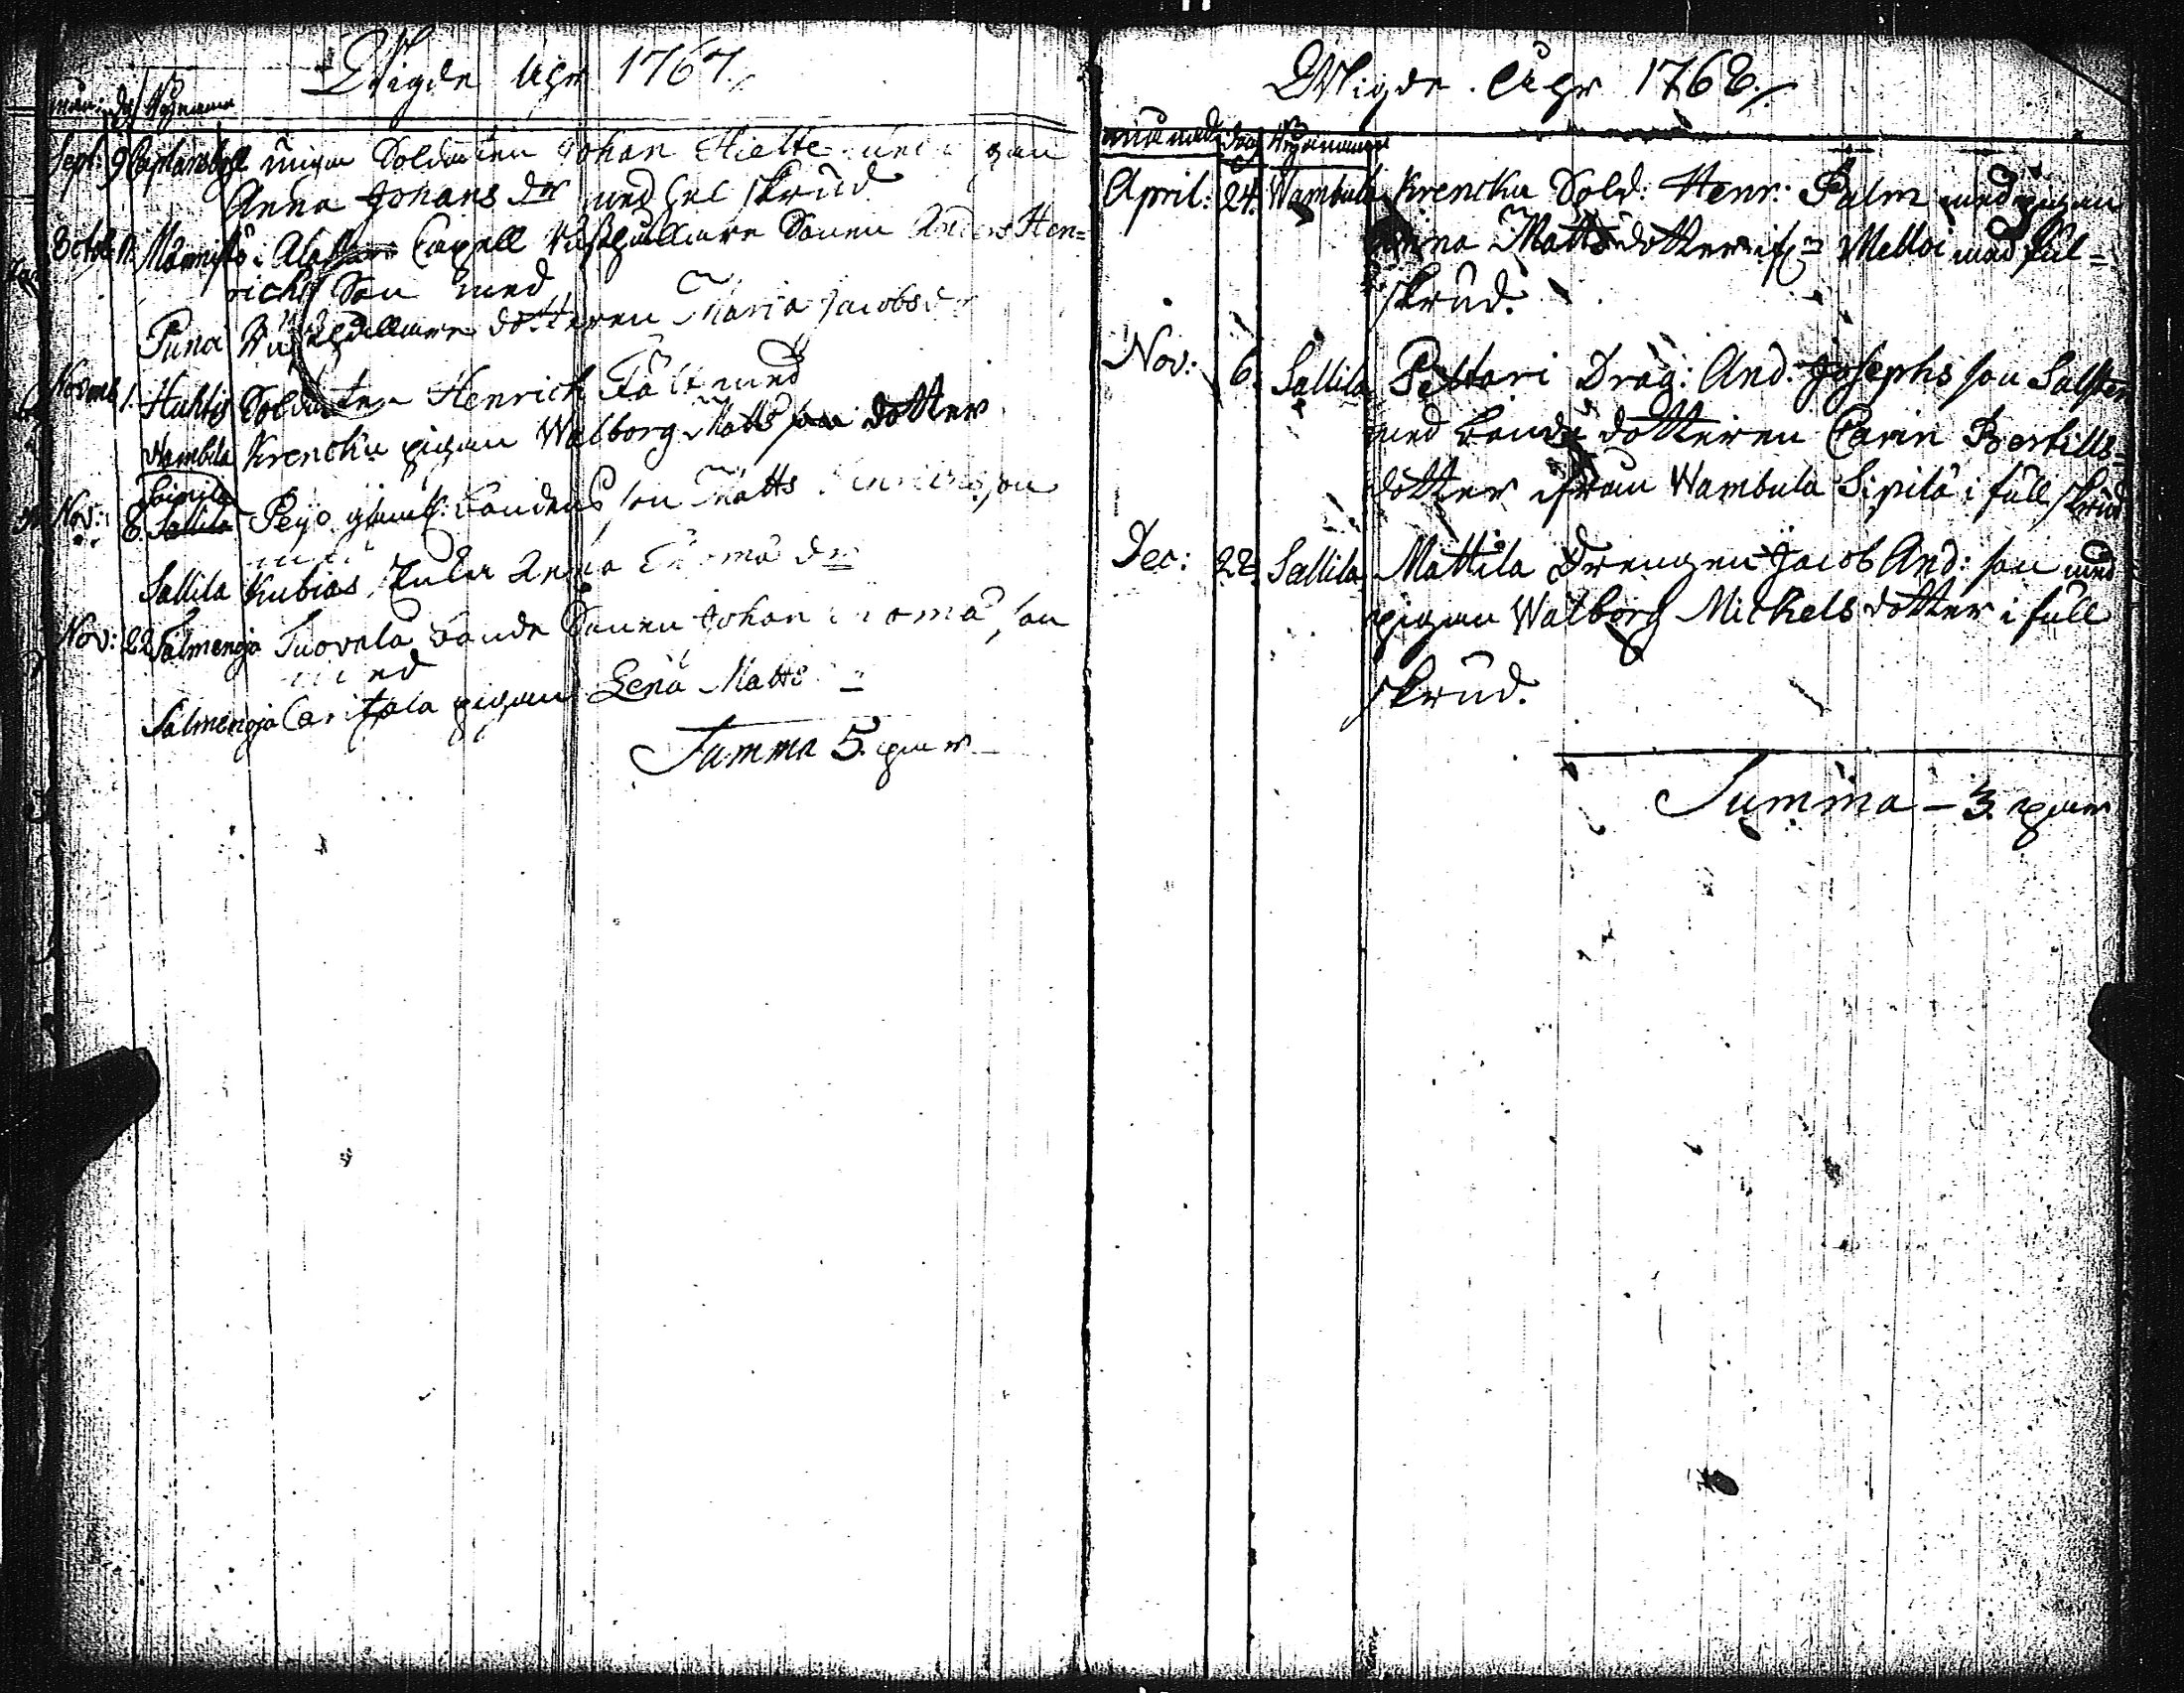 Wigde Åhr 1767.
Sept: 9 Captansboll unga Soldaten Johan Hielte med pigan
Anna Johans dr med hel skrud
Octob Männistö i Alastaro Capell Rusthållare Sonen Anders Hen=
richs Son med
Punoi Rusthållare dotteren Maria Jacobs dr
Novemb 1. Huhtis Soldaten Henrich Fält med
Wambula Krencku pigan Walborg Matts dotter
Sipila
Nov: 8. Sallila Peijo bondens son Matts Henrichs son
med
Sallila Kubias Anna Thomæ dr
Nov: 22 Salmenoja Tuovola bonde Sonen Johan Thomæ son
med
Salmenoja Caritala pigan Lena Matts
Summa 5. par
Wigde Åhr 1768.
månad dag
April: 24. Wambula Krencku Sold: Henr: Palm med pigan
Anna Matts dotter Melloi med ful=
skrud.
Nov: 6. Sallila Pettari Drag: And: Josephs son Salsten
med bonde dotteren Carin Bertills=
dotter ifrån Wambula Sipilä i full skrud
Dec: 22. Sallila Mattila Drengen Jacob And: son med
pigan Walborg Michels dotter i full
skrud.
Summa - 3. par